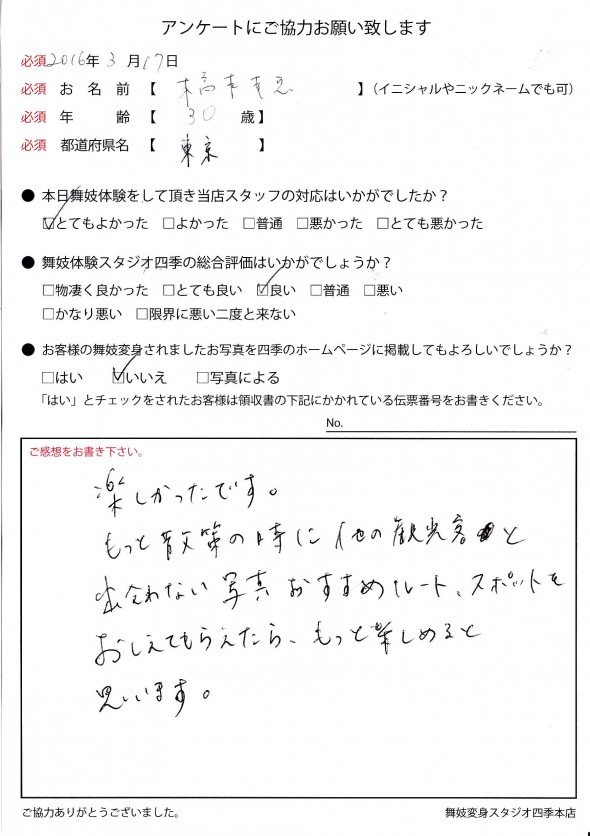 アンケートにご協力お願い致します
必須 2016年 3月 17日
必須 お名前 【 】(イニシャルやニックネームでも可)
必須 年齢 【 30 歳】
必須 都道府県名 【 東京 】
● 本日舞妓体験をして頂き当店スタッフの対応はいかがでしたか？
☑とてもよかった □よかった □普通 □悪かった □とても悪かった
● 舞妓体験スタジオ四季の総合評価はいかがでしょうか？
□物凄く良かった □とても良い ☑良い □普通 □悪い
□かなり悪い □限界に悪い二度と来ない
● お客様の舞妓変身されましたお写真を四季のホームページに掲載してもよろしいでしょうか？
□はい ☑いいえ □写真による
「はい」とチェックをされたお客様は領収書の下記にかかれている伝票番号をお書きください。
No.
ご感想をお書き下さい。
楽しかったです。
もっと散策の時に他の観光客と
出会わない写真おすすめルート、スポットを
おしえてもらえたら、もっと楽しめると
思います。
ご協力ありがとうございました。 舞妓変身スタジオ四季本店